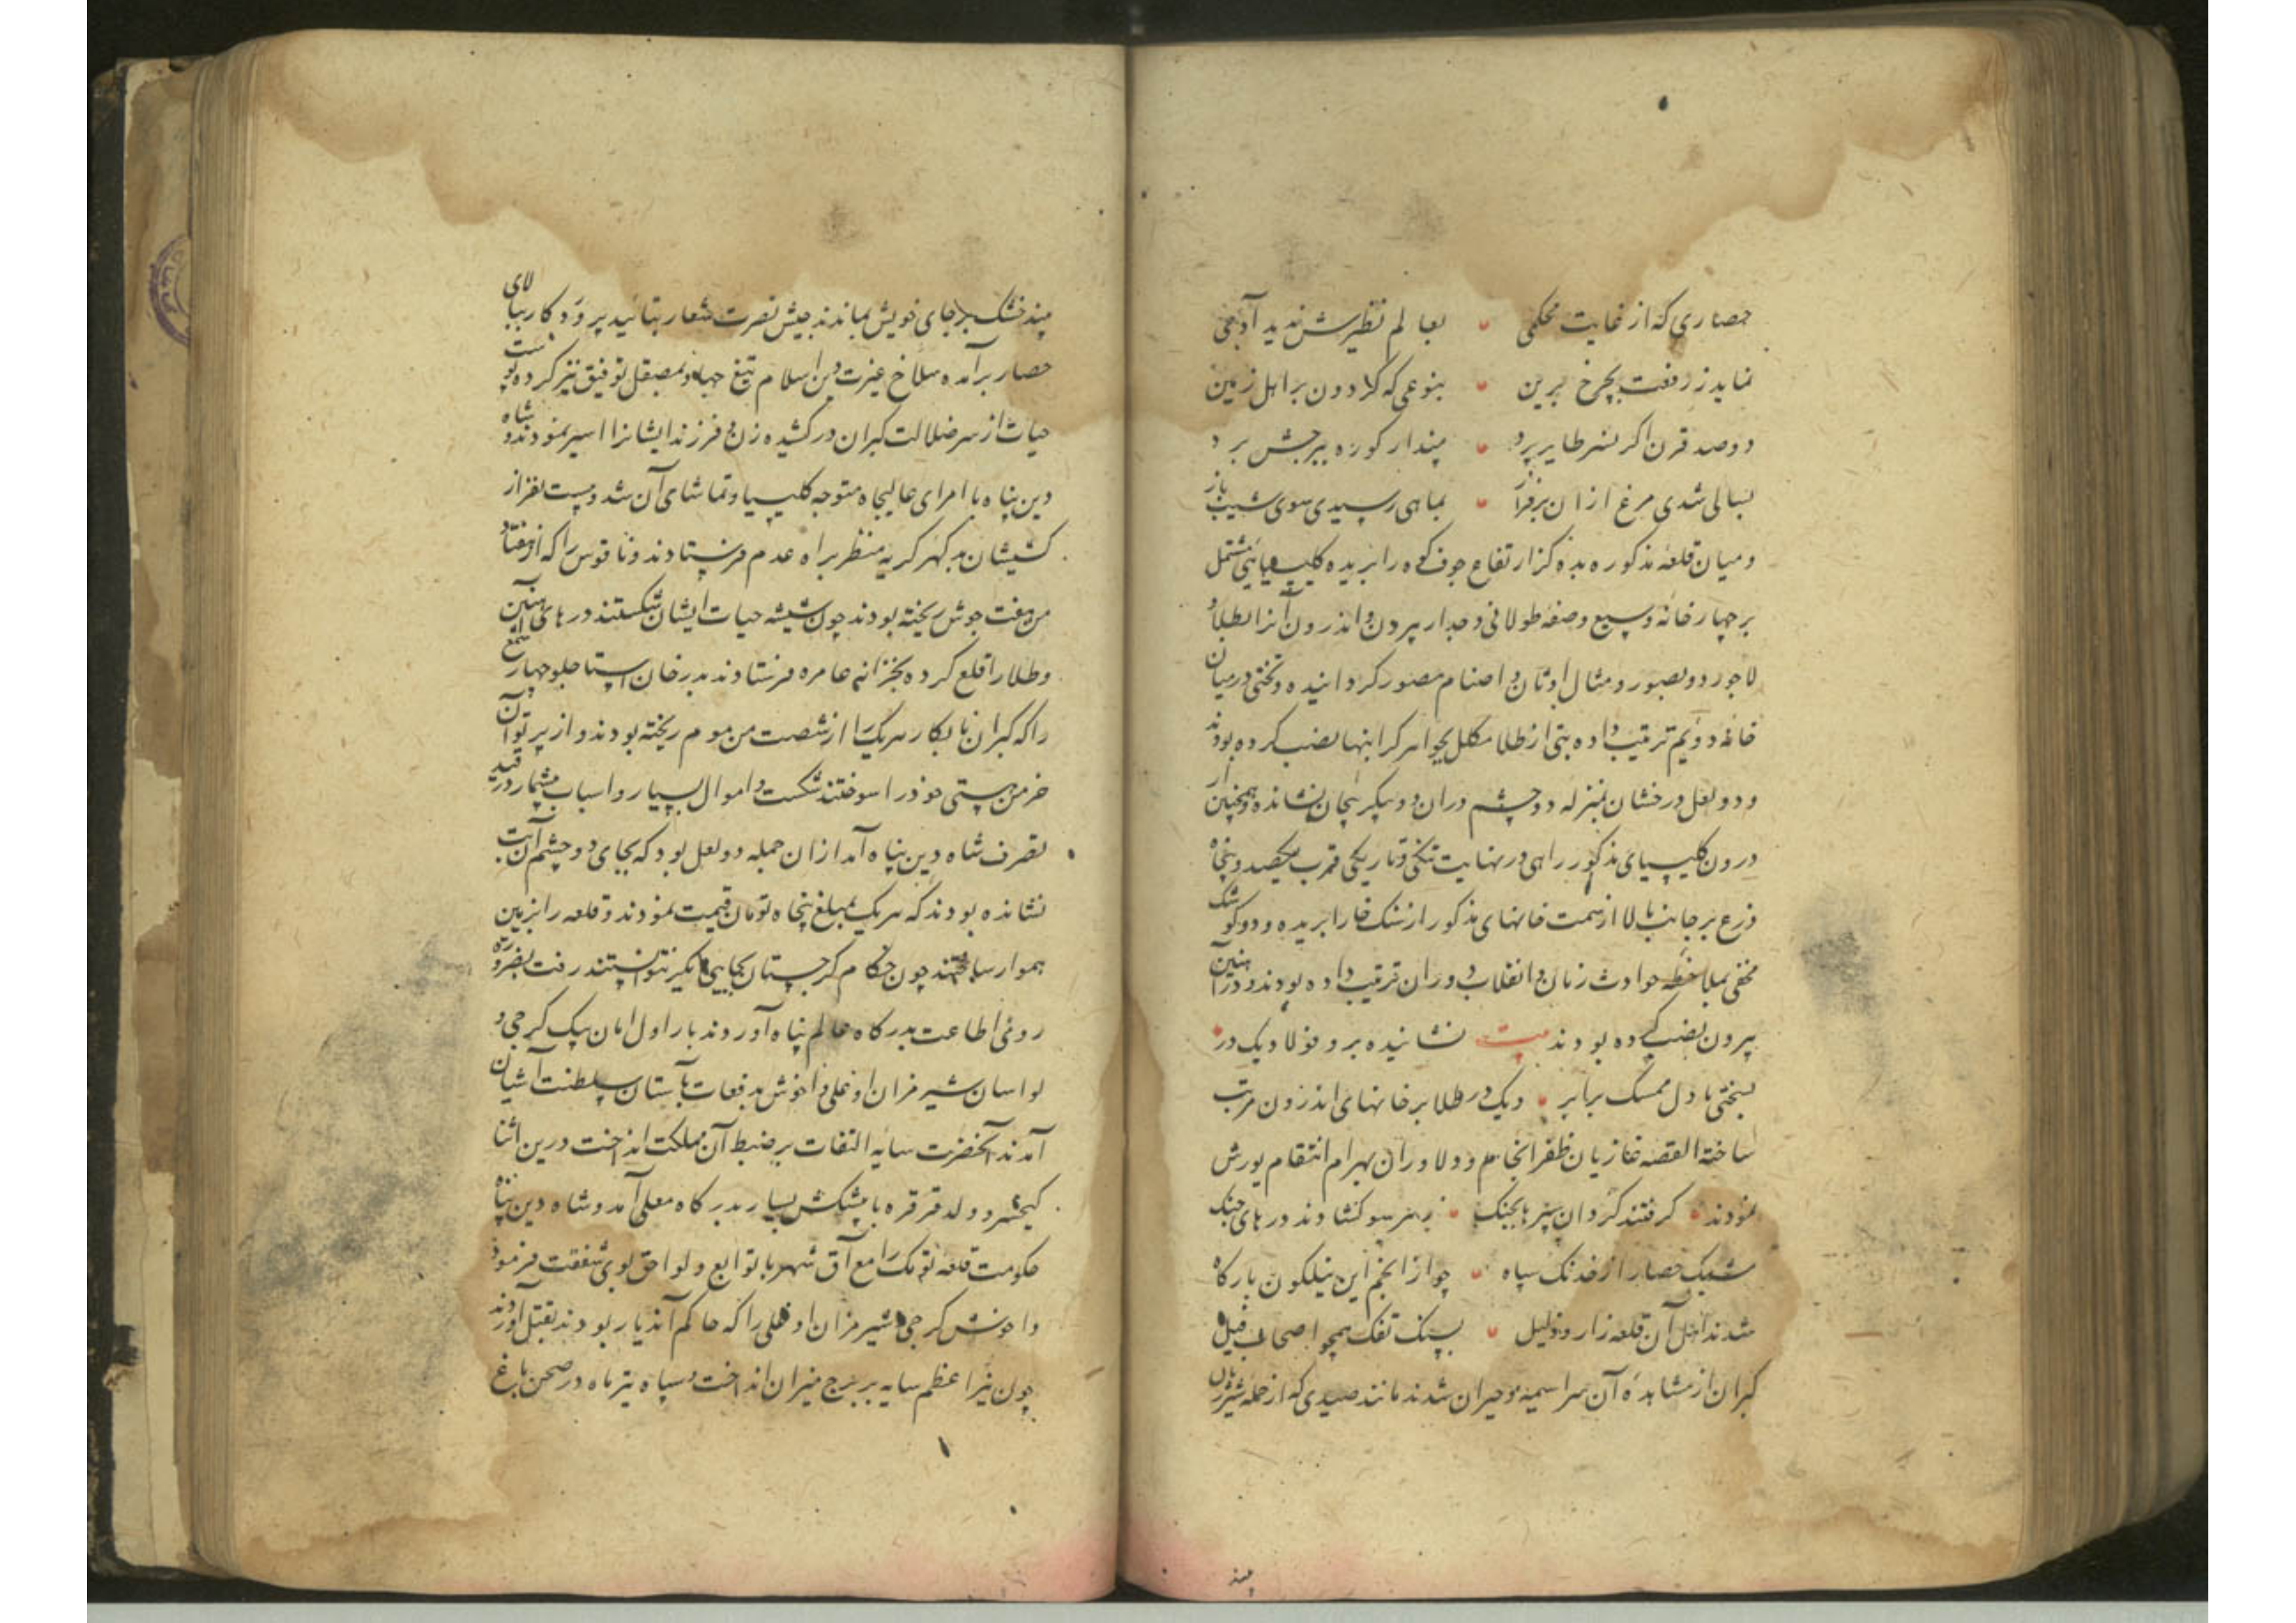 حصاری که از غایت محکمی • بعالم نظیرش ندید آدمی
نماید ز رفعت بچرخ برین • بنوعی که کردون بر اهل زمین
دوصد قرن اکر نسر طایر پرد • پندار کوره ببرجش برد
بسالی شدی مرغ ازان برفراز • بماهی رسیدی سوی شیب باز
ومیان قلعه مذکوره بده کز ارتفاع جوف کوه را بریده کلیسیایی مشتمل
بر چهار خانه وسیع وصفه طولانی وجدار بیرون و اندرون آنرا بطلا و
لاجورد و بصور و مثال اوثان و اصنام مصور کردانیده و تختی درمیان
خانه دویم ترتیب داده بتی از طلا مکلل بجواهر کرانبها نصب کرده بودند
و دو لعل درخشان بمنزله دو چشم دران دو پیکر بیجان نشانده و همچنین از
درون کلیسیای مذکور راهی درنهایت تنکی وتاریکی قرب یکصد وپنجاه
ذرع بر جانب بالا از سمت خانهای مذکور از سنک خارا بریده و دو کوشک
مخفی بملاحظه حوادث زمان و انقلاب دوران ترتیب داده بودند و در آهنین
بیرون نصب کرده بودند بیت نشانیده برو فولاد یک در •
بسختی با دل ممسک برابر • ویک در طلا بر خانهای اندرون مرتب
ساخته القصه غازیان ظفر انجام و دلاوران بهرام انتقام یورش
نمودند • کرفتند کردان سپرها بجنک • زهر سو کشادند درهای جنک
مشبک حصار از خدنک سپاه • چو از انجم این نیلکون بارکاه
شدند اهل آن قلعه زار و ذلیل • بسنک تفک همچو اصحاب فیل
کبران از مشاهده آن سراسیمه و حیران شدند مانند صیدی که از حمله شیر ژیان
چند
چند خشک برجای خویش بماندند جیش نصرت شعار بتائید پروردکار ببالای
حصار برآمده سلاخ غیرت دین اسلام تیغ جهاد بمصقل توفیق تیز کرده پوست
حیات از سر ضلالت کبران درکشیده زن و فرزند ایشانرا اسیر نمودند و شاه
دین پناه با امرای عالیجاه متوجه کلیسیا وتماشای آن شد وبیست نفر از
کشیشان بدکهر کریه منظر براه عدم فرستادند وناقوس را که از هفتاد
من هفت جوش ریخته بودند چون شیشه حیات ایشان شکستند درهای آهنین
وطلا را قلع کرده بخزانه عامره فرستادند بدرخان استاجلو چهار شمع
را که کبران نابکار هریک را از شصت من موم ریخته بودند و از پرتو آن
خرمن هستی خود را سوختند شکست و اموال بسیار و اسباب بیشمار در قید
تصرف شاه دین پناه آمد ازان جمله دو لعل بود که بجای دو چشم آن بت
نشانده بودند که هریک بمبلغ پنجاه تومان قیمت نمودند و قلعه را بزمین
هموار ساختند چون حکام کرجستان بجایی دیکر نتوانستند رفت بضرورت
روی اطاعت بدرکاه عالم پناه آوردند بار اول امان بیک کرجی و
لواسان شیرمزان اوغلی واخوش بدفعات بآستان سلطنت آشیان
آمدند آنحضرت سایه التفات بر ضبط آن مملکت انداخت درین اثنا
کیخسرو ولد قرقره با پیشکش بسیار بدرکاه معلی آمد و شاه دین پناه
حکومت قلعه تومک را مع آق شهر با توابع و لواحق بوی شفقت فرمود
واخوش کرجی شیرمزان اوغلی را که حاکم آندیار بودند بقتل آوردند
چون نیر اعظم سایه بر برج میزان انداخت و سپاه تیرماه در صحن باغ